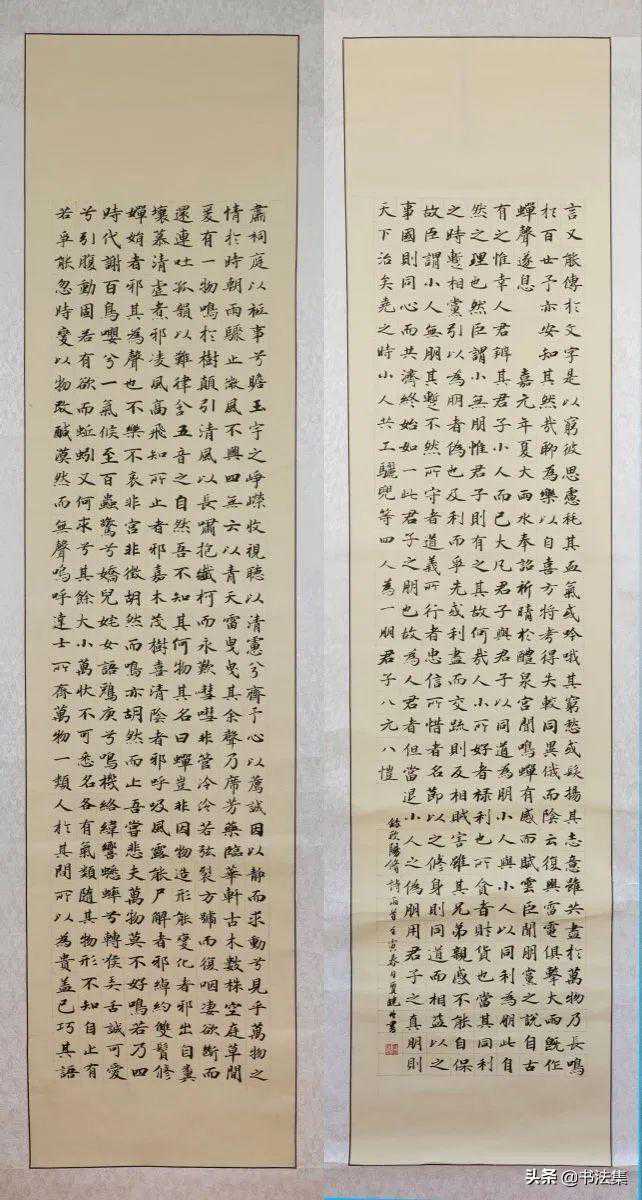 肅祠庭以祗事兮瞻玉宇之崢嶸收視聽以清慮兮齋予心以薦誠因以靜而求動兮見乎萬物之
情於時朝雨驟止微風不興四無云以青天雷曳曳其余聲乃席芳藥臨華軒古木數株空庭草間
爰有一物鳴於樹顛引清風以長嘯抱纖柯而永歎嘒嘒非管泠泠若弦裂方號而復咽凄欲斷而
還連吐孤韻以難律含五音之自然吾不知其何物其名曰蟬豈非因物造形能變化者邪出自糞
壤慕清虛者邪凌風高飛知所止者邪嘉木茂樹喜清陰者邪呼吸風露能尸解者邪綽約雙鬢修
嬋娟者邪其為聲也不樂不哀非宮非徵胡然而鳴亦胡然而止吾嘗悲夫萬物莫不好鳴若乃四
時代謝百鳥嚶兮一氣候至百蟲驚兮嬌兒姹女語鸝庚兮鳴機絡緯響蟋蟀兮轉喉弄舌誠可愛
兮引腹動固若有欲而蚯蚓又何求兮其餘大小萬狀不可悉名各有氣類隨其物形不知自止有
若爭能忽時變以物改鹹漠然而無聲嗚呼達士所齊萬物一類人於其間所以為貴蓋已巧其語
言又能傳於文字是以窮彼思慮耗其血氣或吟哦其窮愁或發揚其志意雖共盡於萬物乃長鳴
於百世予亦安知其然哉聊為樂以自喜方將考得失較同異俄而陰云復興雷電俱擊大雨既作
蟬聲遂息 嘉元年夏大雨水奉詔祈晴於醴泉宮聞鳴蟬有感而賦雲臣聞朋黨之說自古
有之惟幸人君辨其君子小人而已大凡君子與君子以同道為朋小人與小人以同利為朋此自
然之理也然臣謂小無朋惟君子則有之其故何哉人小所好者祿利也所貪者財貨也當其同利
之時暫相黨引以為朋者偽也及利而爭先或利盡而交疏則反相賊害雖其兄弟親戚不能自保
故臣謂小人無朋其暫不然所守者道義所行者忠信所惜者名節以之修身則同道而相益以之
事國則同心而共濟終始如一此君子之朋也故為人君者但當退小人之偽朋用君子之真朋則
天下治矣堯之時小人共工驩兜等四人為一朋君子八元八愷
錄歐陽脩詩兩首壬寅春月賈曉書
头条 @书法集